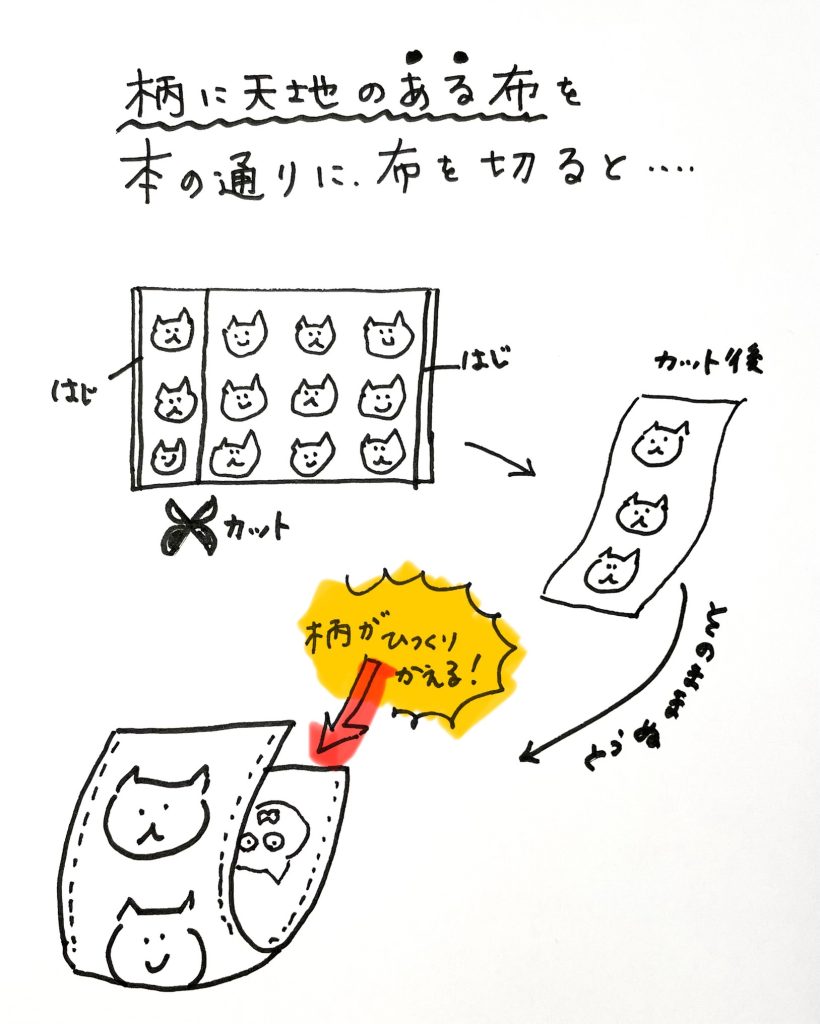 柄に天地のある布を
本の通りに、布を切ると‥‥
はじ
はじ
カット
カット後
このままぬうと
柄がひっくり
かえる!